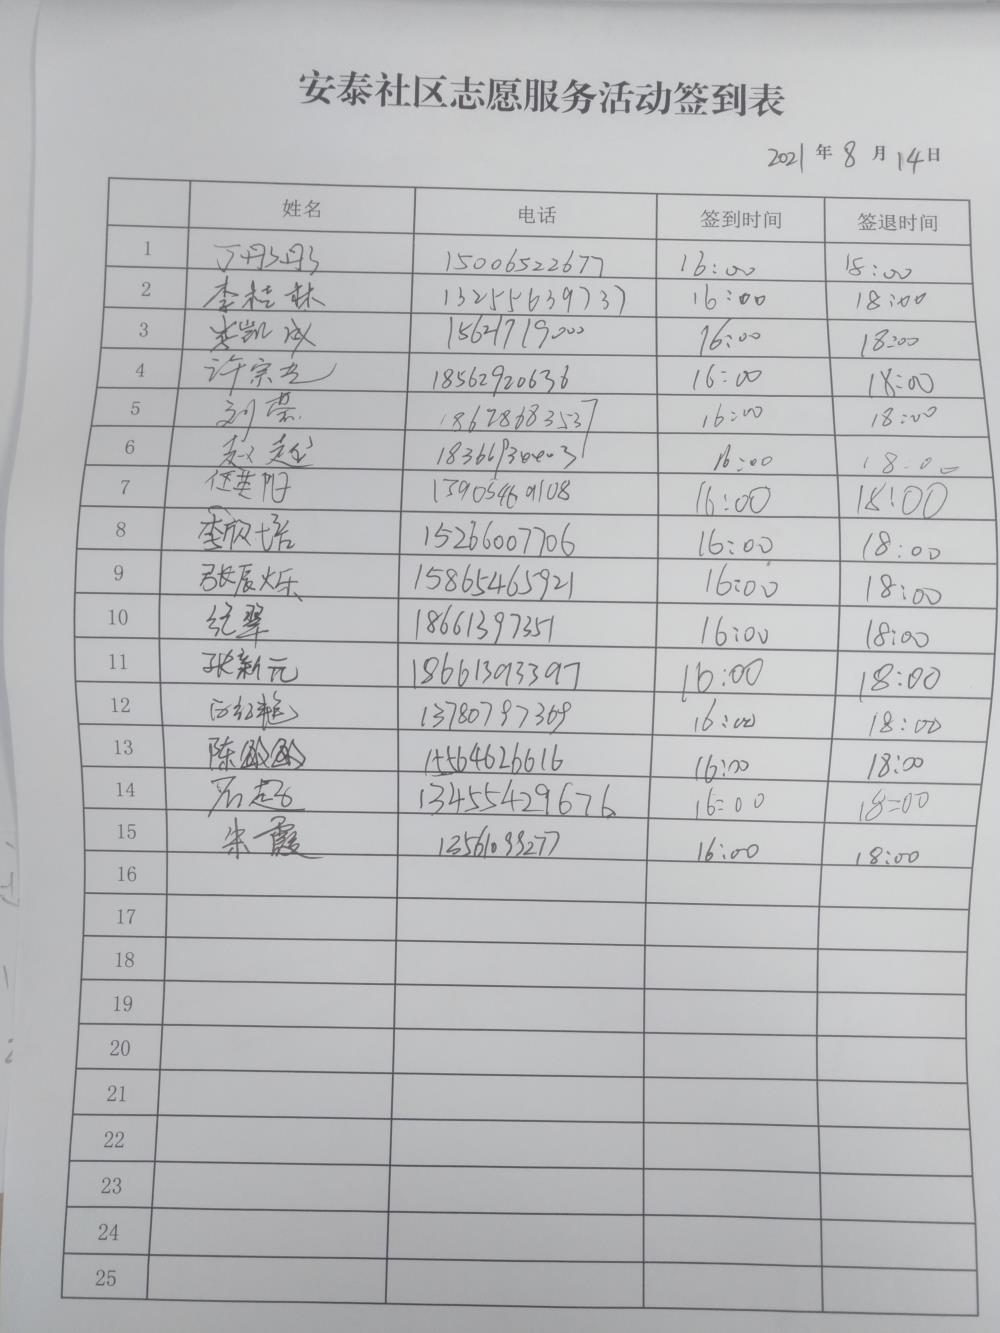 安泰社区志愿服务活动签到表
2021年8月14日
姓名 电话 签到时间 签退时间
1 丁丹丹 15006522677 16:00 18:00
2 李桂林 13255639737 16:00 18:00
3 李凯成 15621719000 16:00 18:00
4 许宗 18562920636 16:00 18:00
5 刘荣 18678683537 16:00 18:00
6 赵超 16:00 18:00
7 任英阳 16:00 18:00
8 李欣培 15266007706 16:00 18:00
9 张辰烁 15865465921 16:00 18:00
10 纪翠 18661397351 16:00 18:00
11 张新元 18661393397 16:00 18:00
12 13780797369 16:00 18:00
13 陈 15564626616 16:00 18:00
14 石超 13455429676 16:00 18:00
15 朱霞 13561099277 16:00 18:00
16
17
18
19
20
21
22
23
24
25